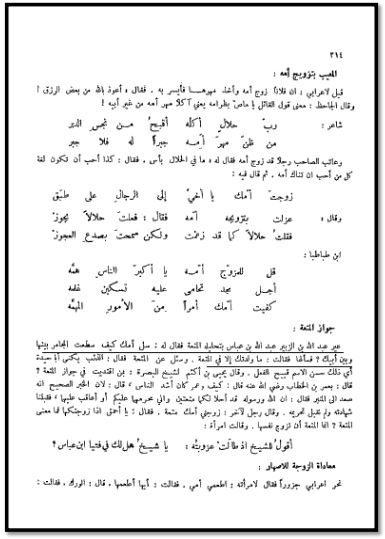 ٣١٤
المعيب بتزويج أمه :
قيل لاعرابي : ان فلاناً زوج أمه وأخذ مهرهـــا فأيسر به . فقال : أعوذ بالله من بعض الرزق !
وقال الجاحظ : معنى قول القائل يا ماصّ بظر أمه يعني آكلاً مهر أمه من غير أبيه !
شاعر : ربّ حلالٍ أكلُه أقبحُ مــن نجسِ الدبر
من ظن مهرَ أمــه جبراً له فلا جبر
وعاتب الصاحب رجلاً قد زوج أمه فقال له : ما في الحلال بأس . فقال : كذا أحب أن تكون لغة
كل من أحب ان تناك أمه . ثم قال فيه :
زوجتَ أمك يا أخيْ إلى الرجالِ على طبقِ
وقال : عزلت بتزويجه أمّه فقال : فعلتَ حلالاً يجوزْ
فقلتُ حلالاً كما قد زعمتَ ولكن سمحتَ بصدعِ العجوزْ
ابن طباطبا :
قل للمزوّج أمــه يا أكبرَ الناس همَّه
أجــل مجد تحامى عليه تسكين غلمه
كفيت أمّك أمراً مِنَ الأمور المهمَّه
جواز المتعة :
عير عبد الله بن الزبير عبد الله بن عباس بتحليله المتعة فقال له : سل أمك كيف سطعت المجامر بينها
وبين أبيك ؟ فسألها فقالت : ما ولدتك إلا في المتعة . وسئل عن المتعة فقال : الذئب يكنى أبا جعدة
أي ذلك حسن الاسم قبيح الفعل . وقال يحيى بن أكثم لشيخ بالبصرة : بمن اقتديت في جواز المتعة ؟
قال : بعمر بن الخطاب رضي الله عنه قال : كيف وعمر كان أشد الناس ؟ قال : لان الخبر الصحيح انه
صعد الى المنبر فقال : ان الله ورسوله قد أحلا لكما متعتين واني محرمهما عليكم أو أعاقب عليهما ؛ فقبلنا
شهادته ولم نقبل تحريمه . وقال رجل لآخر : زوجني أمك متعة . فقال : يا أحمق اذا زوجتكها فما معنى
المتعة ؟ انما المتعة أن تزوج نفسها . وقالت امرأة :
أقولُ للشيخِ اذ طالَت عزوبتُه : يا شيخُ هل لك في فتيا ابن عباس ؟
معاداة الزوجة للاصهار :
نحر اعرابي جزوراً فقال لامرأته : اطعمي أمي . فقالت : أيها أطعمها . قال : الورك . فقالت :